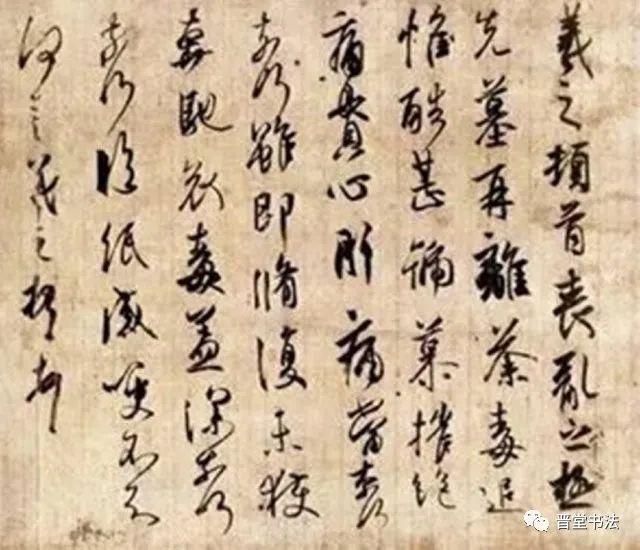 羲之頓首喪亂之極
先墓再離荼毒追
惟酷甚號慕摧絕
痛貫心肝痛當奈何
奈何雖即脩復未獲
奔馳哀毒益深奈何
奈何臨紙感哽不知
何言羲之頓首
晋堂书法